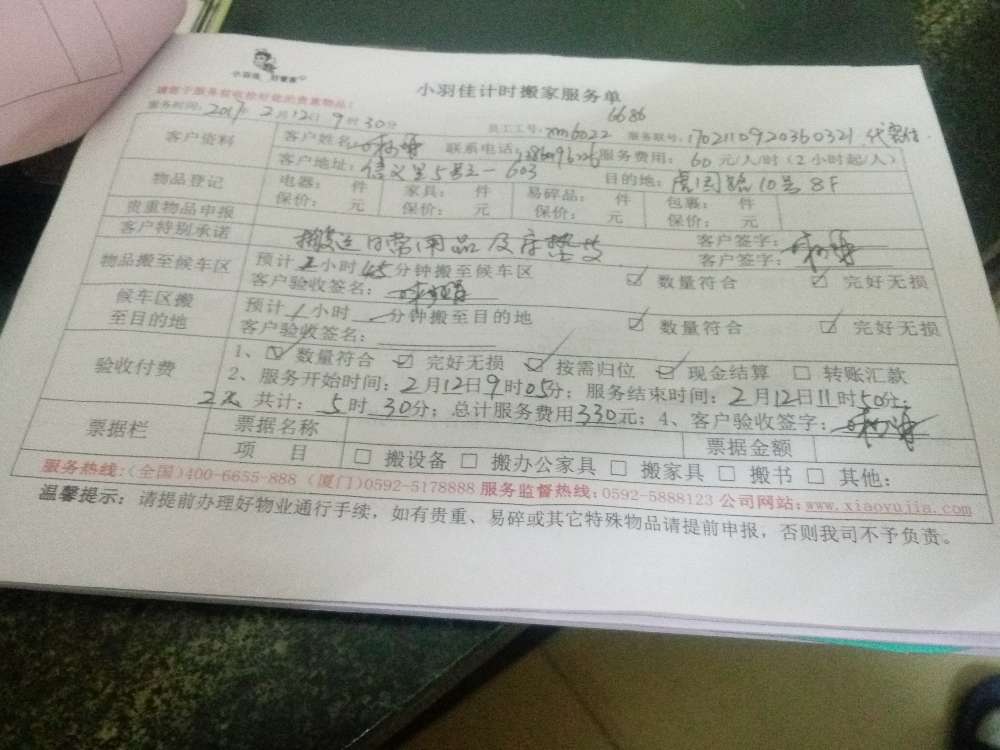 小羽佳 好管家
小羽佳计时搬家服务单
请您于服务前收捡好您的贵重物品!
6686
服务时间: 2017年2月12日9时30分 员工工号: xm6022 服务联号: 1702110920360321
客户资料 客户姓名: 联系电话: 服务费用: 60元/人/时(2小时起/人)
客户地址: 信义里5号之一603 目的地: 虎园路10号8F
物品登记 电器: 件 家具: 件 易碎品: 件 包裹: 件
贵重物品申报 保价: 元 保价: 元 保价: 元 保价: 元
客户特别承诺 搬运日常用品及床垫 客户签字:
客户签字:
物品搬至候车区 预计2小时45分钟搬至候车区 ☑ 数量符合 ☑ 完好无损
客户验收签名:
候车区搬至目的地 预计1小时 分钟搬至目的地 ☑ 数量符合 ☑ 完好无损
客户验收签名:
验收付费 1、☑ 数量符合 ☑ 完好无损 ☑ 按需归位 ☑ 现金结算 □ 转账汇款
2、服务开始时间: 2月12日9时05分; 服务结束时间: 2月12日11时50分;
2人 共计: 5时30分; 总计服务费用330元; 4、客户验收签字:
票据栏 票据名称 票据金额
项 目 □ 搬设备 □ 搬办公家具 □ 搬家具 □ 搬书 □ 其他:
服务热线:(全国)400-6655-888 (厦门)0592-5178888 服务监督热线:0592-5888123 公司网站:www.xiaoyujia.com
温馨提示: 请提前办理好物业通行手续, 如有贵重、易碎或其它特殊物品请提前申报, 否则我司不予负责。